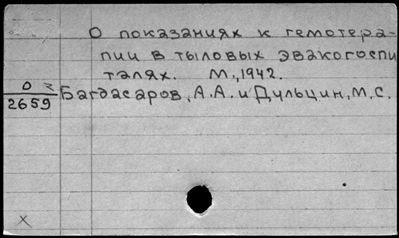 О показаниях к гемотера-
пии в тыловых эвакогоспи
талях. М., 1942.
О
2659
Багдасаров, А.А. и Дульцин, М.С.
х